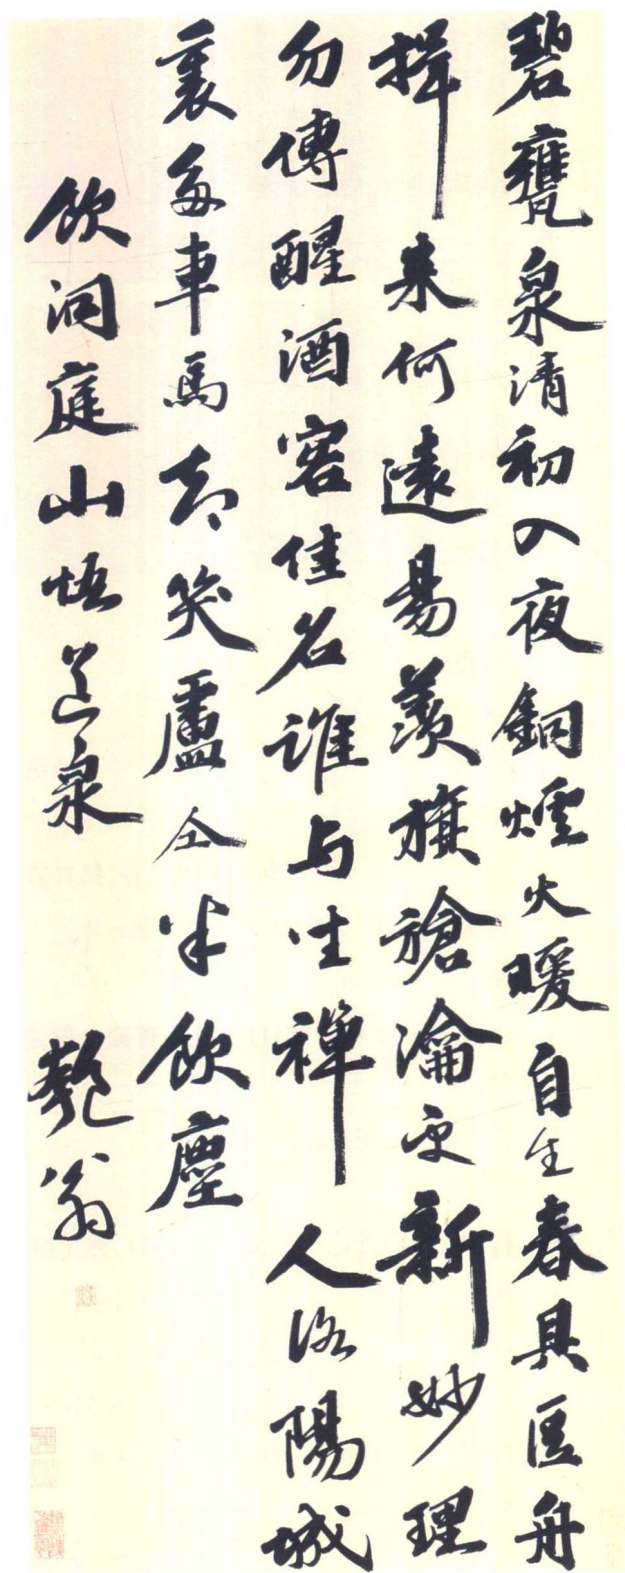 碧甕泉清初入夜銅爐火暖自生春具區舟
楫來何遠昜羨旗槍瀹更新妙理
勿傳醒酒客佳名誰与坐禪人洛陽城
裏多車馬却笑盧仝半飲塵
飲洞庭山悟道泉 匏翁